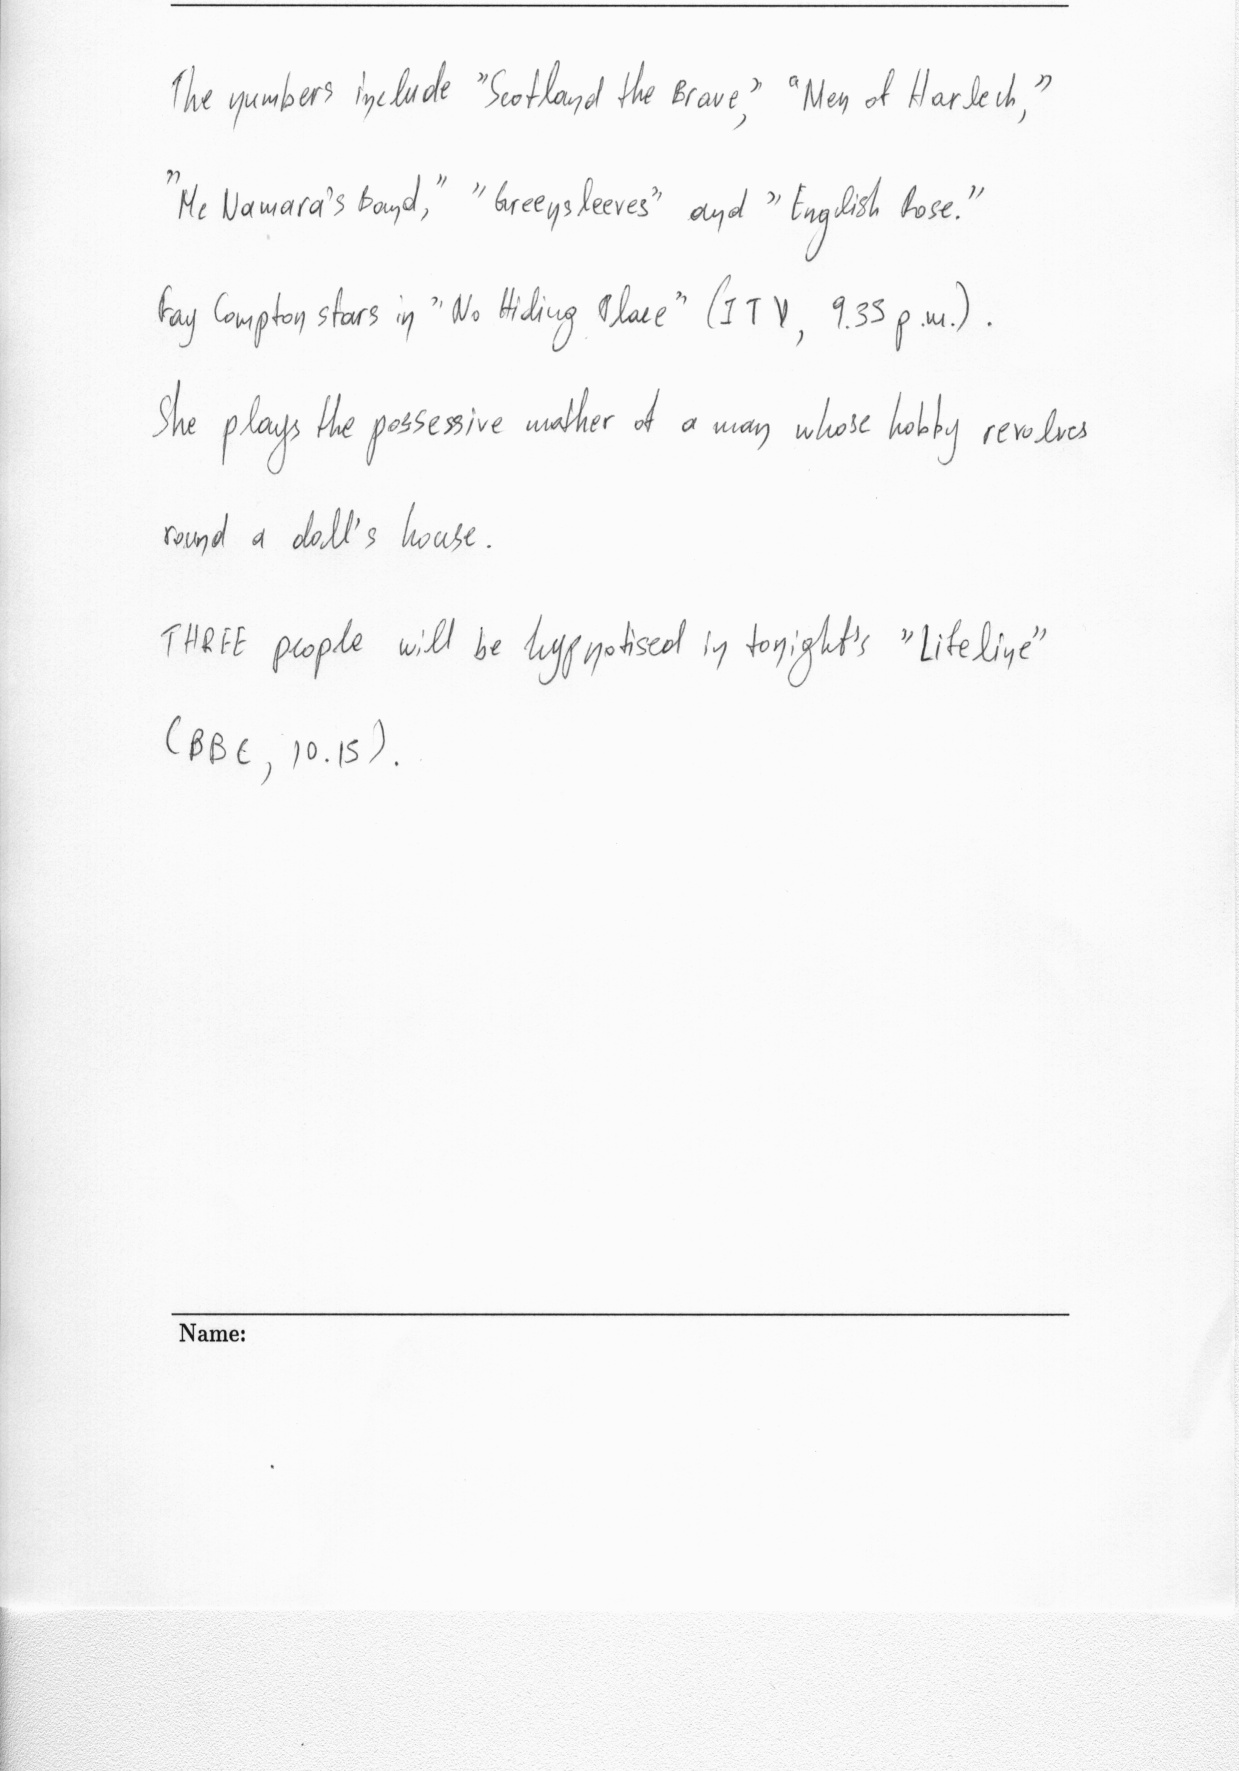 The numbers include "Scotland the Brave," "Men of Harlech,"
"Mc Namara's Band," "Greensleeves" and "English Rose."
Fay Compton stars in "No Hiding Place" (ITV, 9.35 p.m.).
She plays the possessive mother of a man whose hobby revolves
round a doll's house.
THREE people will be hypnotised in tonight's "Lifeline"
(BBC, 10.15).
Name: